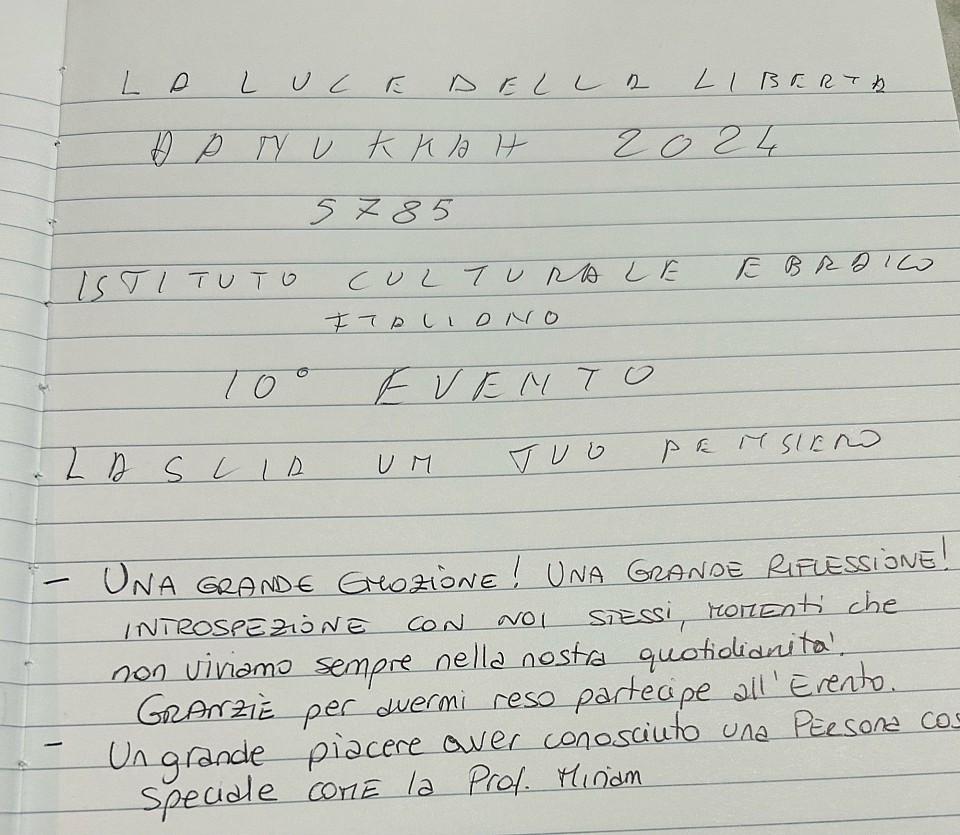 LA LUCE DELLA LIBERTA
HANUKKAH 2024
5785
ISTITUTO CULTURALE EBRAICO
ITALIANO
10° EVENTO
LASCIA UN TUO PENSIERO
- UNA GRANDE EMOZIONE! UNA GRANDE RIFLESSIONE!
INTROSPEZIONE CON NOI STESSI, MOMENTI che
non viviamo sempre nella nostra quotidianità.
GRANZIE per avermi reso partecipe all'Evento.
- Un grande piacere aver conosciuto una Persona cos
speciale COME la Prof. Miriam